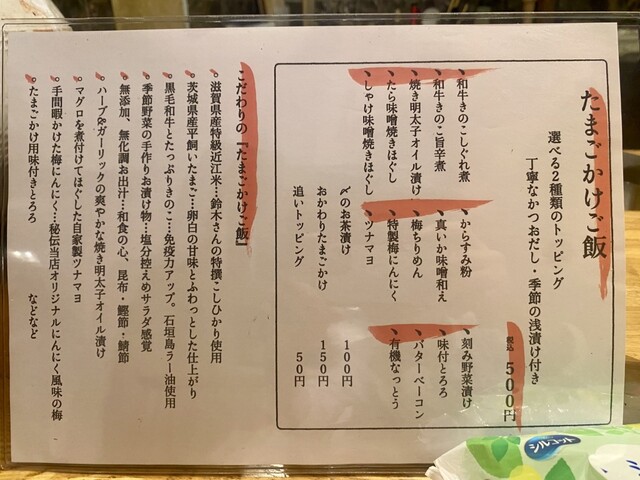 たまごかけご飯
選べる2種類のトッピング
丁寧なかつおだし・季節の浅漬け付き
税込 500円
和牛きのこしぐれ煮
和牛きのこ旨辛煮
焼き明太子オイル漬け
たら味噌焼きほぐし
しゃけ味噌焼きほぐし
からすみ粉
真いか味噌和え
梅ちりめん
特製梅にんにく
ツナマヨ
刻み野菜漬け
味付とろろ
バターベーコン
有機なっとう
〆のお茶漬け 100円
おかわりたまごかけ 150円
追いトッピング 50円
こだわりの『たまごかけご飯』
滋賀県産特級近江米…鈴木さんの特撰こしひかり使用
茨城県産平飼いたまご…卵白の甘味とふわっとした仕上がり
黒毛和牛とたっぷりきのこ…免疫力アップ。石垣島ラー油使用
季節野菜の手作りお漬け物…塩分控えめサラダ感覚
無添加、無化調お出汁…和食の心、昆布・鰹節・鯖節
ハーブ&ガーリックの爽やかな焼き明太子オイル漬け
マグロを煮付けてほぐした自家製ツナマヨ
手間暇かけた梅にんにく…秘伝当店オリジナルにんにく風味の梅
たまごかけ用味付きとろろ などなど
シルコット